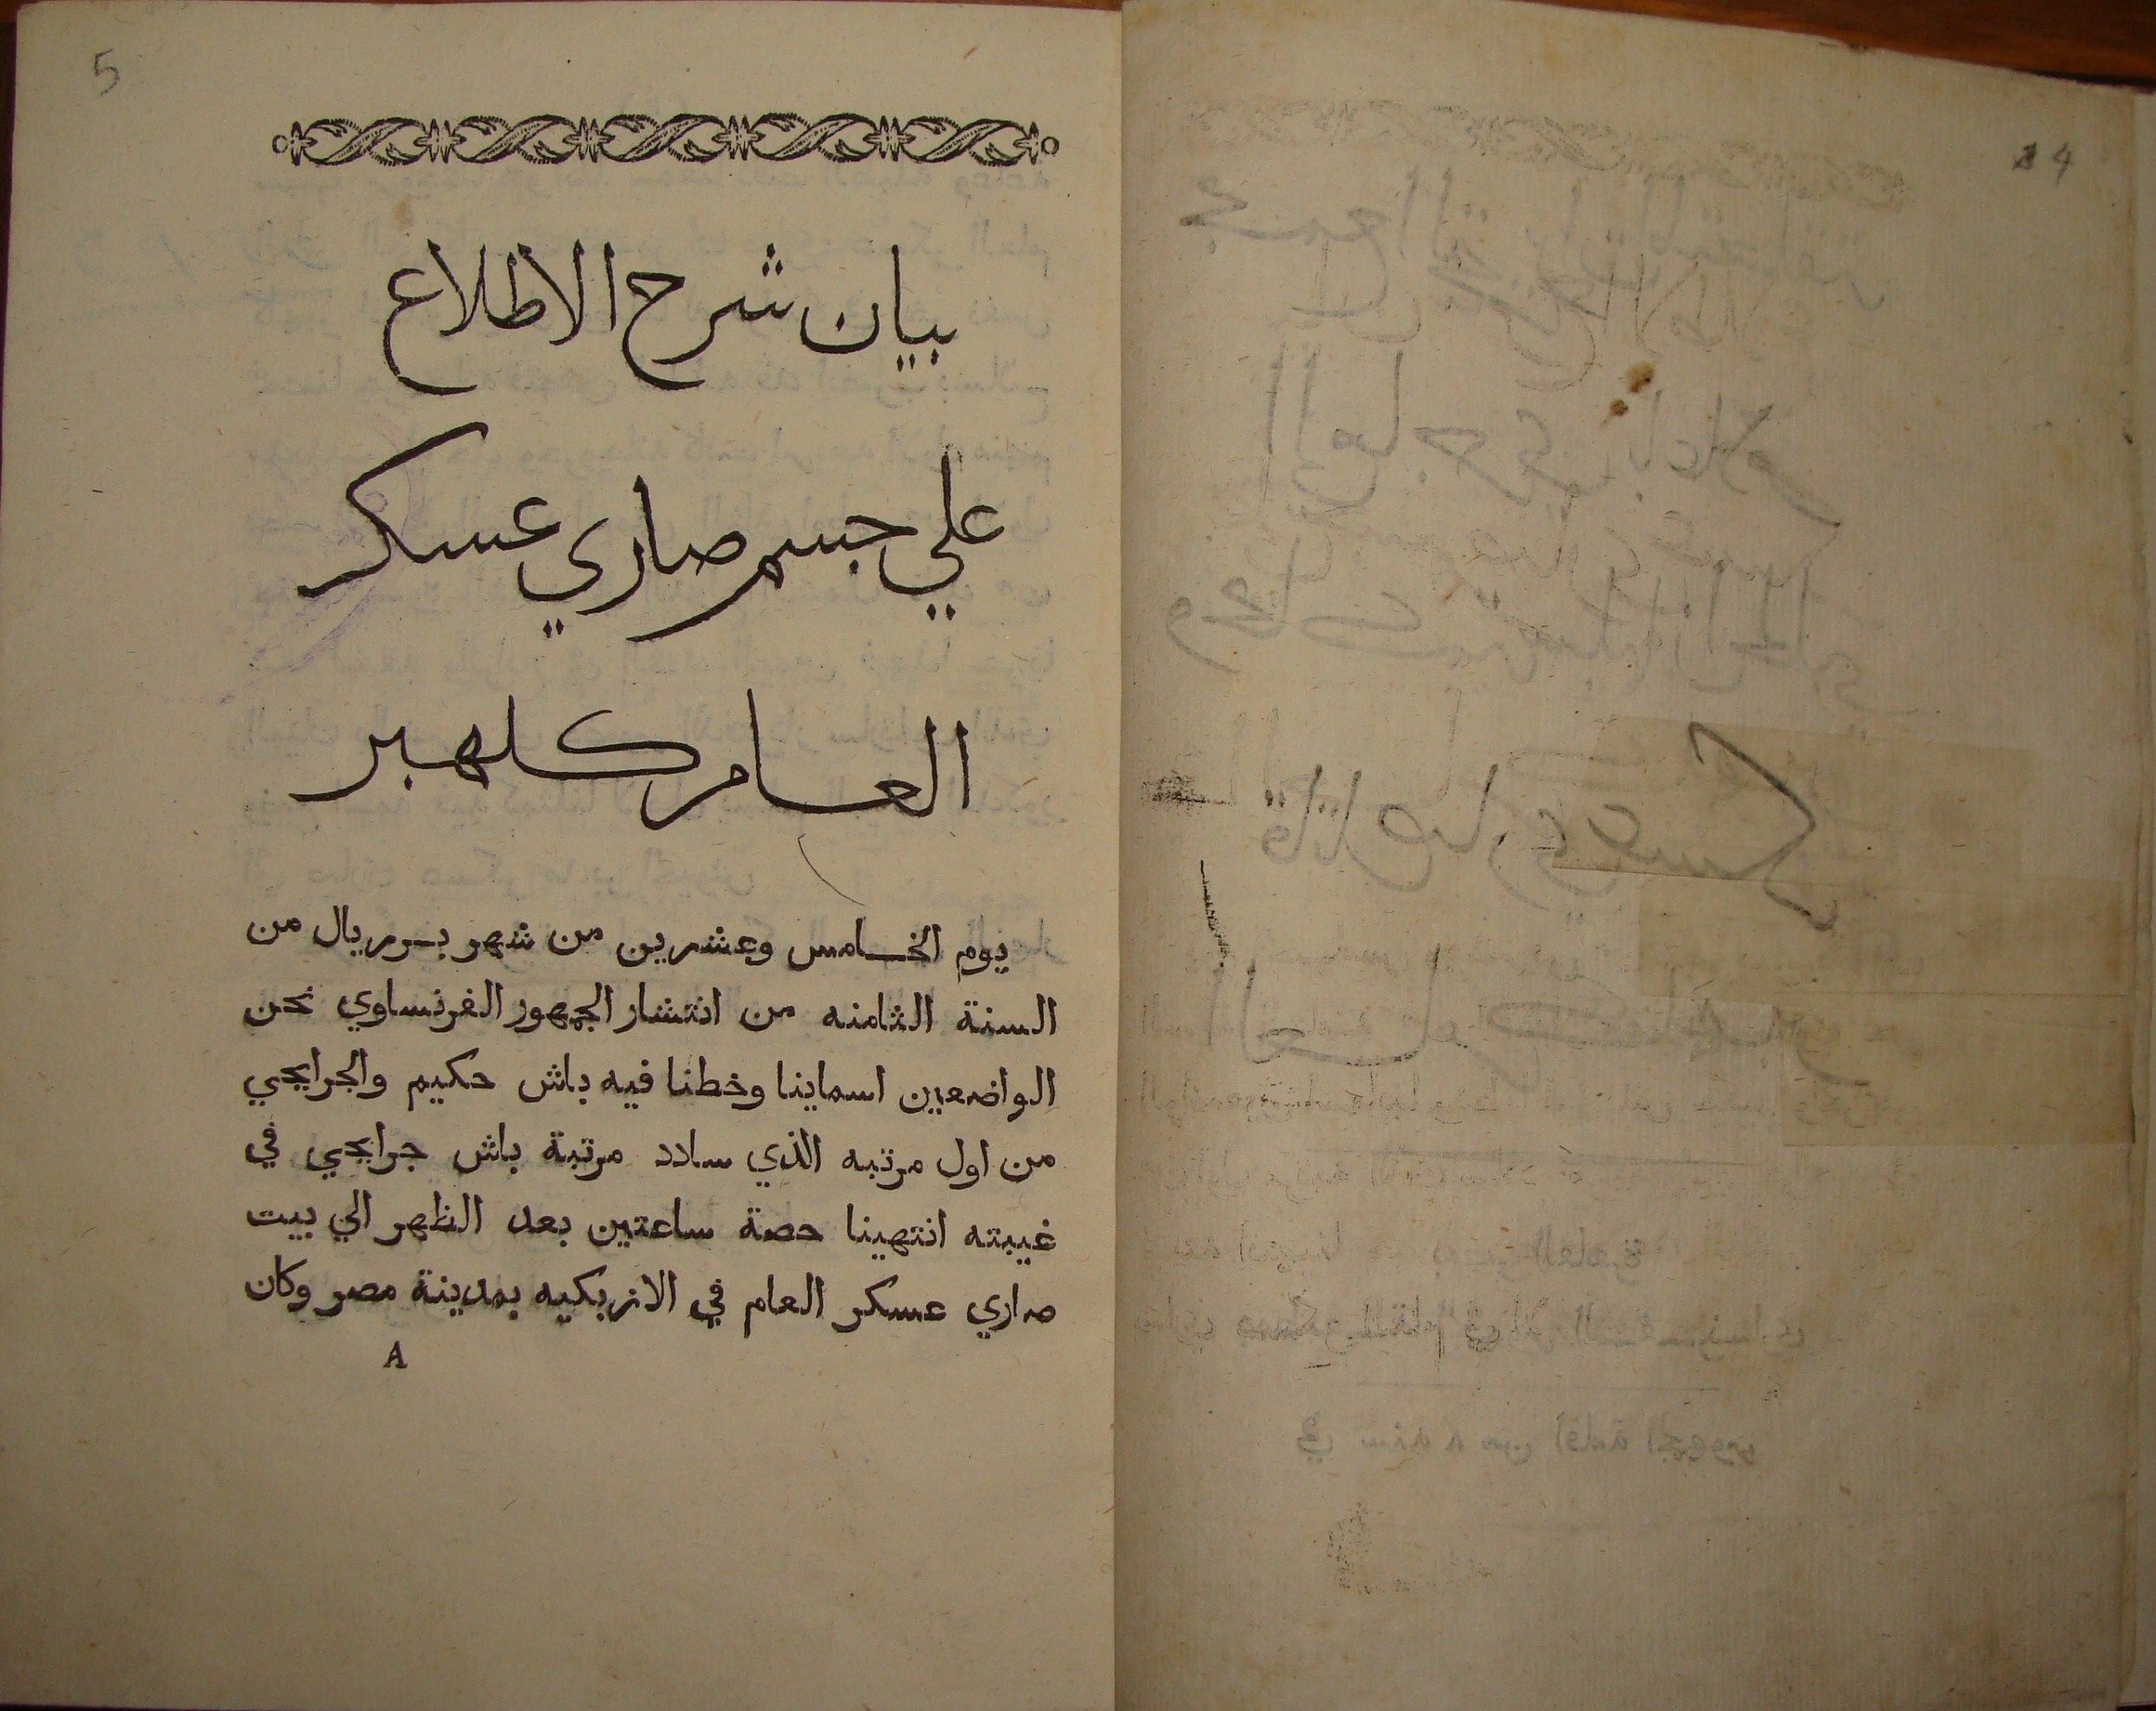 5
بيان شرح الاطلاع
علي جسم صاري عسكر
العام كلهبر
يوم الخامس وعشرين من شهر بررريال من
السنة الثامنه من انتشار الجمهور الفرنساوي نحن
الواضعين اسماينا وخطنا فيه باش حكيم والجرايحي
من اول مرتبه الذي سادد مرتبة باش جرايحي في
غيبته انتهينا حصة ساعتين بعد الظهر الي بيت
صاري عسكر العام في الازبكيه بمدينة مصر وكان
A
4